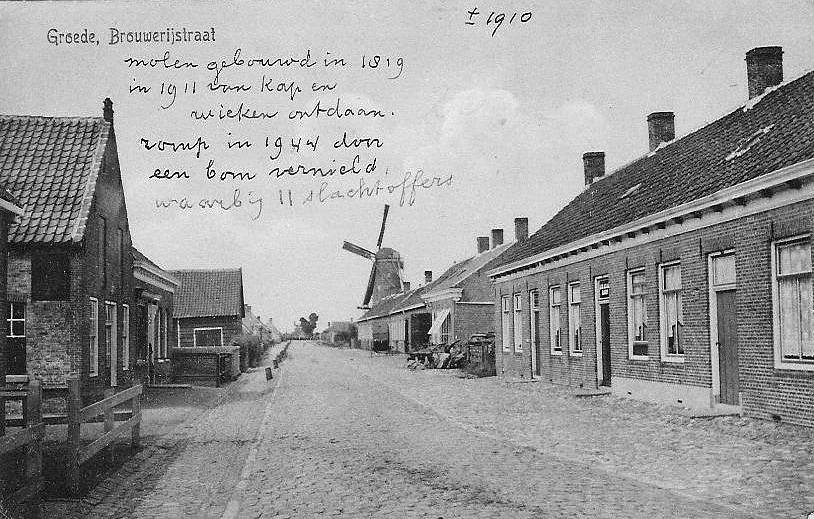 ± 1910
Groede, Brouwerijstraat
molen gebouwd in 1819
in 1911 van kap en
wieken ontdaan.
romp in 1944 door
een bom vernield,
waarbij 11 slachtoffers